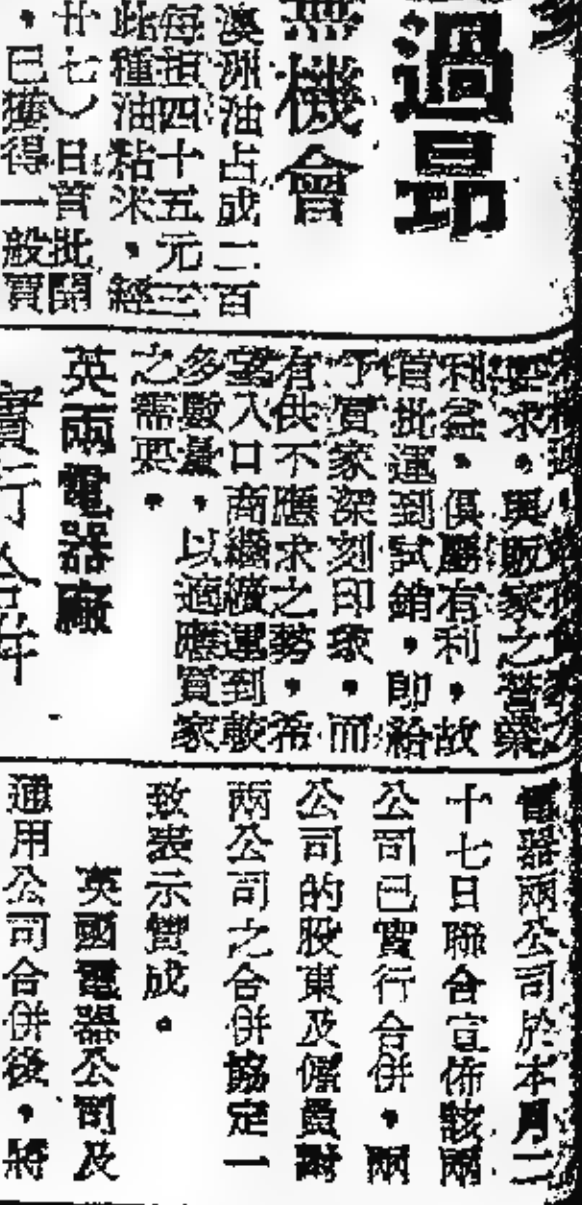 過昂
無機會
澳洲油占成二百
每担四十五元三
此種油粘米，經
廿七）日首批開
，已獲得一般買
要求，與販家之營業
利益，俱屬有利，故
首批運到試銷，即給
予買家深刻印象，而
有供不應求之勢，希
望入口商繼續運到較
多數量，以適應買家
之需要。
英兩電器廠
實行合併
電器兩公司於本月二
十七日聯合宣佈該兩
公司已實行合併，兩
公司的股東及僱員對
兩公司之合併協定一
致表示贊成。
英國電器公司及
通用公司合併後，將